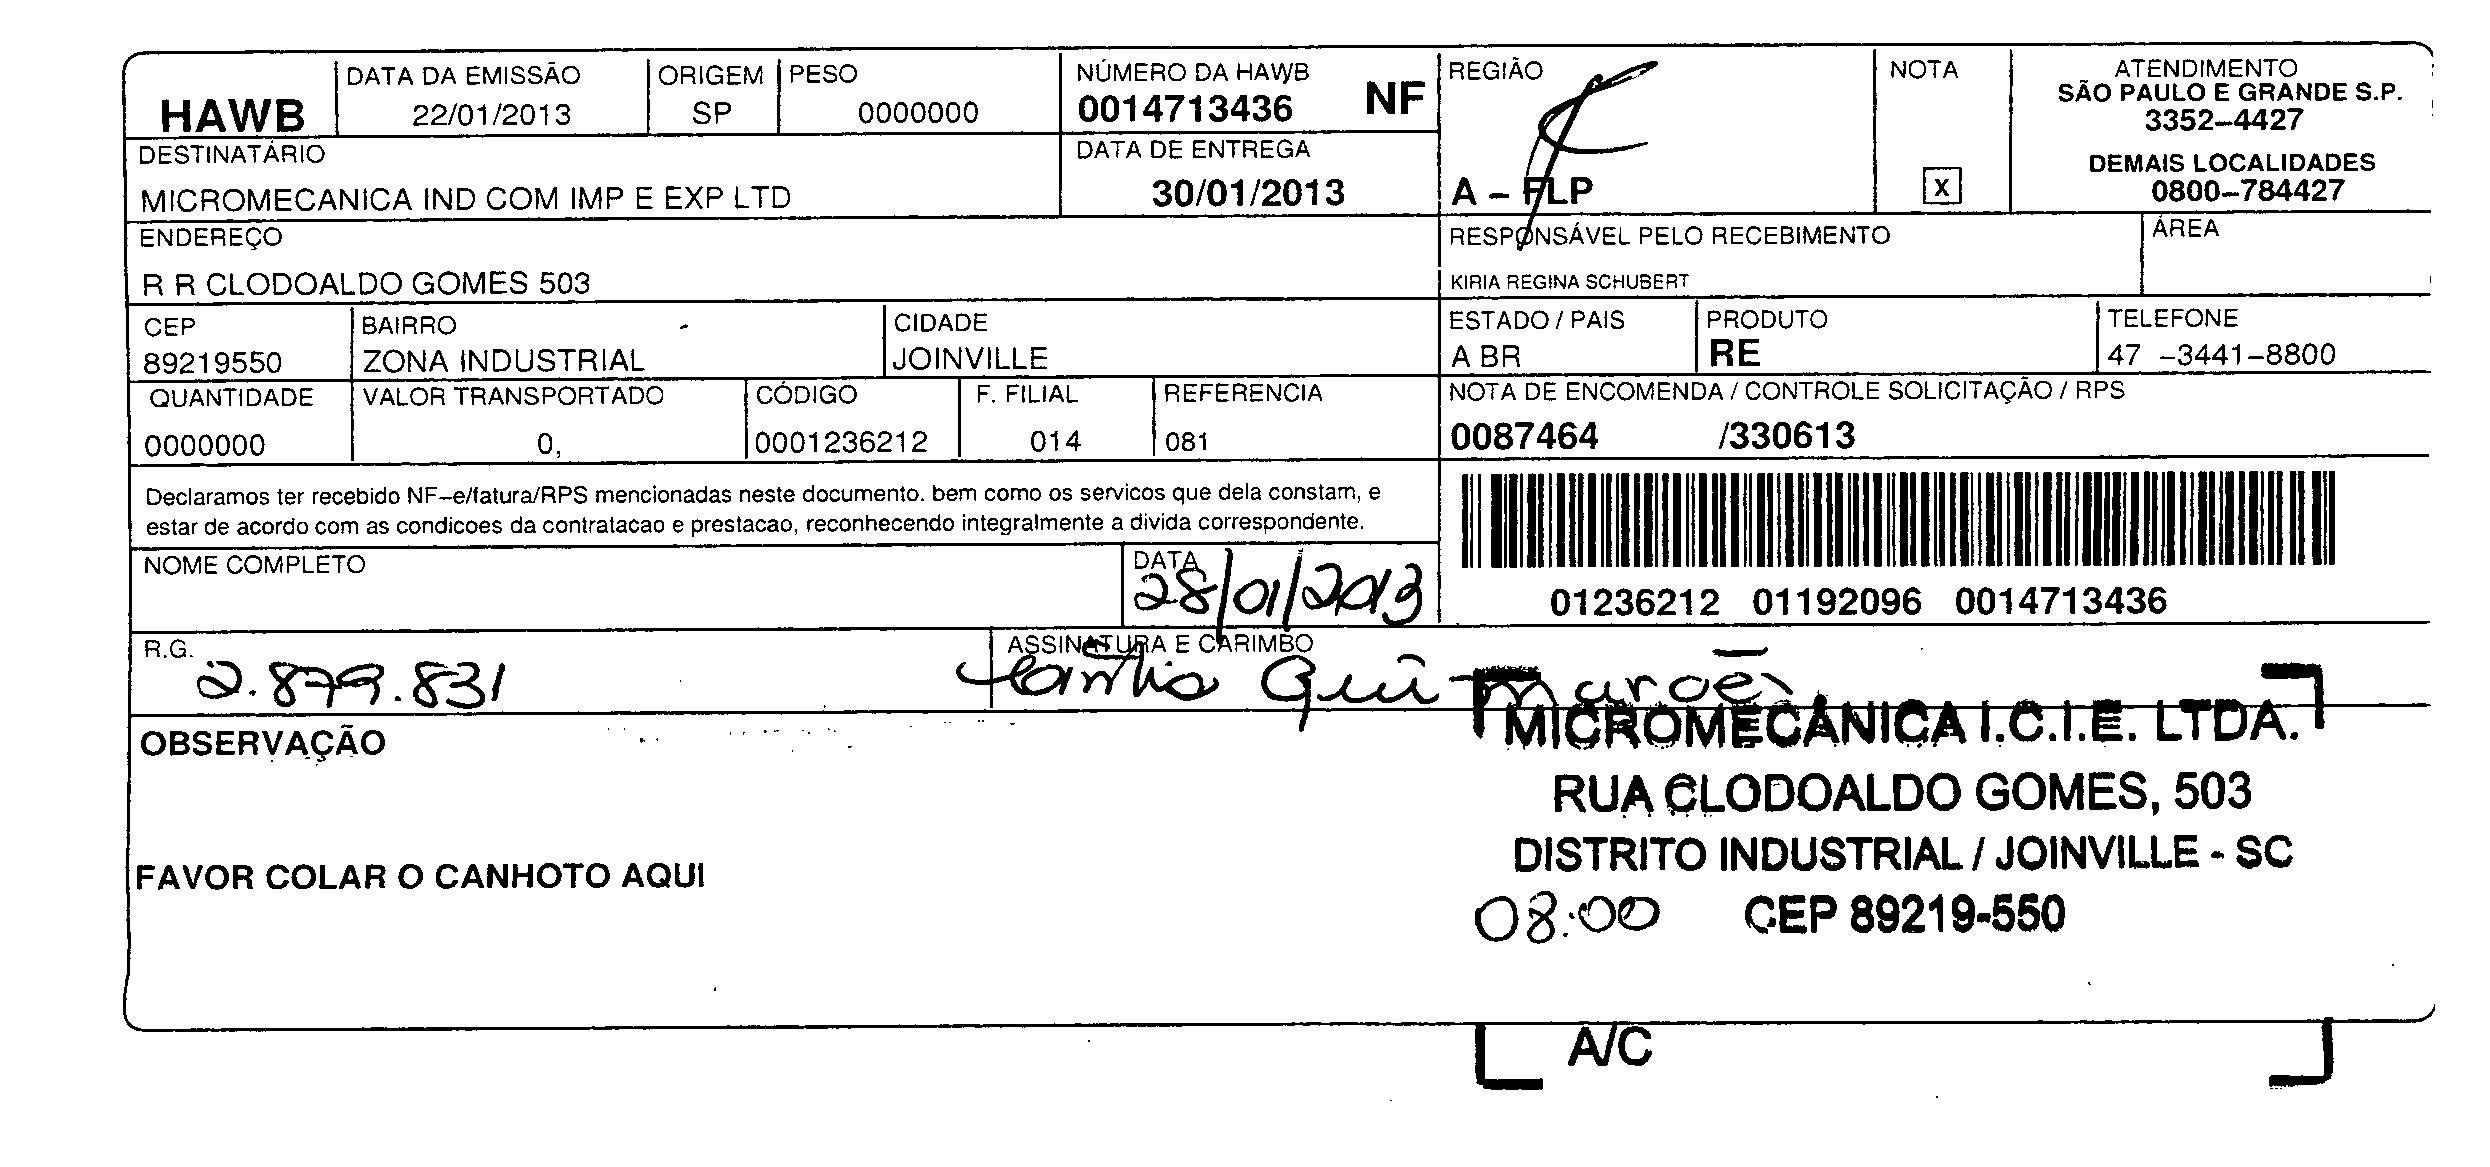 HAWB
DATA DA EMISSÃO
22/01/2013
ORIGEM
SP
PESO
0000000
NÚMERO DA HAWB
0014713436 NF
REGIÃO
A – FLP
NOTA
X
ATENDIMENTO
SÃO PAULO E GRANDE S.P.
3352–4427
DEMAIS LOCALIDADES
0800–784427
DESTINATÁRIO
MICROMECANICA IND COM IMP E EXP LTD
DATA DE ENTREGA
30/01/2013
ENDEREÇO
R R CLODOALDO GOMES 503
RESPONSÁVEL PELO RECEBIMENTO
KIRIA REGINA SCHUBERT
ÁREA
CEP
89219550
BAIRRO
ZONA INDUSTRIAL
CIDADE
JOINVILLE
ESTADO / PAIS
A BR
PRODUTO
RE
TELEFONE
47 –3441–8800
QUANTIDADE
0000000
VALOR TRANSPORTADO
0,
CÓDIGO
0001236212
F. FILIAL
014
REFERENCIA
081
NOTA DE ENCOMENDA / CONTROLE SOLICITAÇÃO / RPS
0087464 /330613
Declaramos ter recebido NF–e/fatura/RPS mencionadas neste documento. bem como os servicos que dela constam, e
estar de acordo com as condicoes da contratacao e prestacao, reconhecendo integralmente a divida correspondente.
01236212 01192096 0014713436
NOME COMPLETO
DATA
28/01/2013
R.G.
2.879.831
ASSINATURA E CARIMBO
OBSERVAÇÃO
FAVOR COLAR O CANHOTO AQUI
MICROMECÂNICA I.C.I.E. LTDA.
RUA CLODOALDO GOMES, 503
DISTRITO INDUSTRIAL / JOINVILLE - SC
08:00 CEP 89219-550
A/C